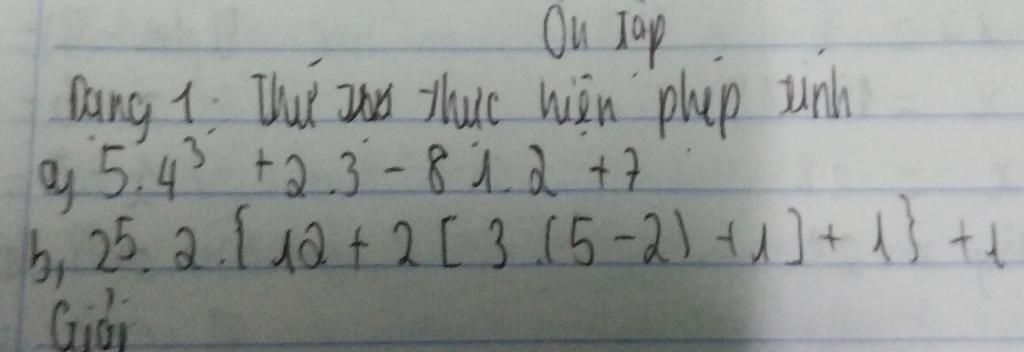 Ôn tập
Dạng 1: Thứ tự thực hiện phép tính
a, 5.4³ + 2.3 - 81.2 + 7
b, 25.2.{12 + 2[3.(5-2) + 1] + 1} + 1
Giải